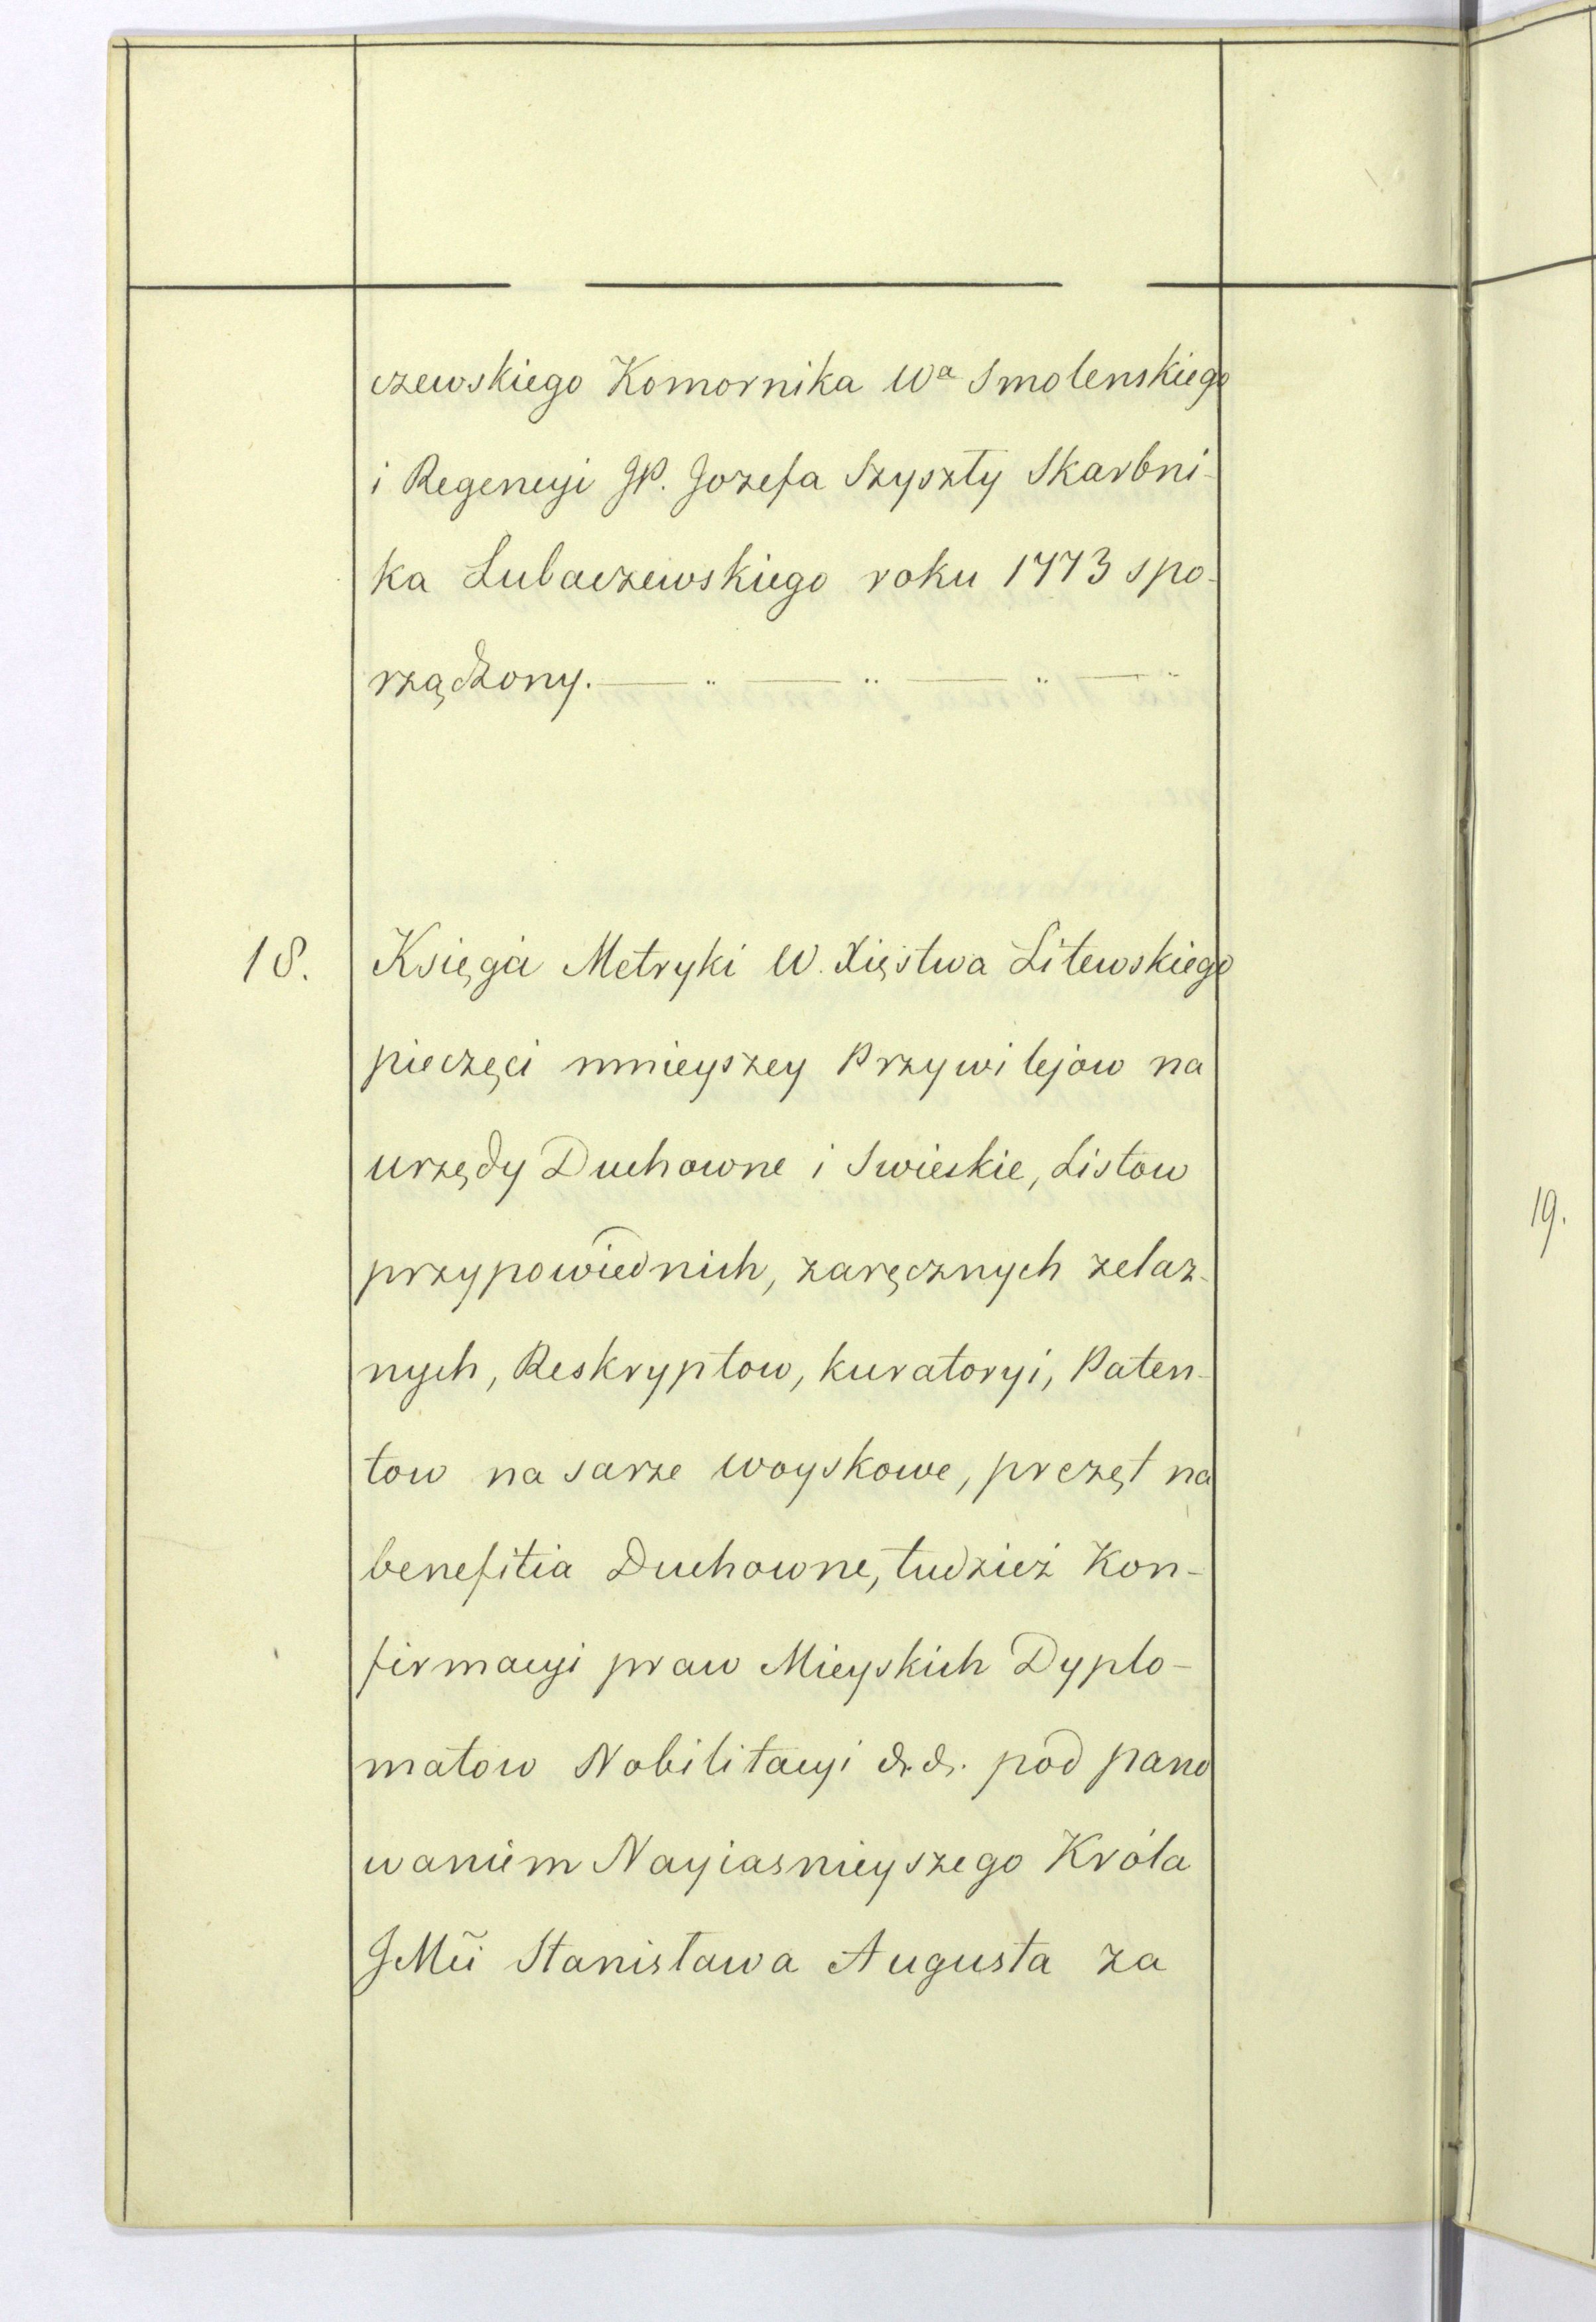 czewskiego Komornika Wa Smolenskiego
i Regencyi JP. Jozefa Szyszły Skarbni-
ka Lubaczewskiego roku 1773 spo-
rządzony.
18. Księga Metryki W. Xięstwa Litewskiego
pieczęci mnieyszey Przywilejow na
urzędy Duchowne i Swieckie, Listow
przypowiednich, zaręcznych zelaz-
nych, Reskryptow, kuratoryi, Paten-
tow na sarze woyskowe, prezęt na
benefitia Duchowne, tudzież Kon-
firmacyi praw Mieyskich Dyplo-
matow Nobilitacyi &. &. pod pano
waniem Nayiasnieyszego Króla
JMci Stanisława Augusta za
19.